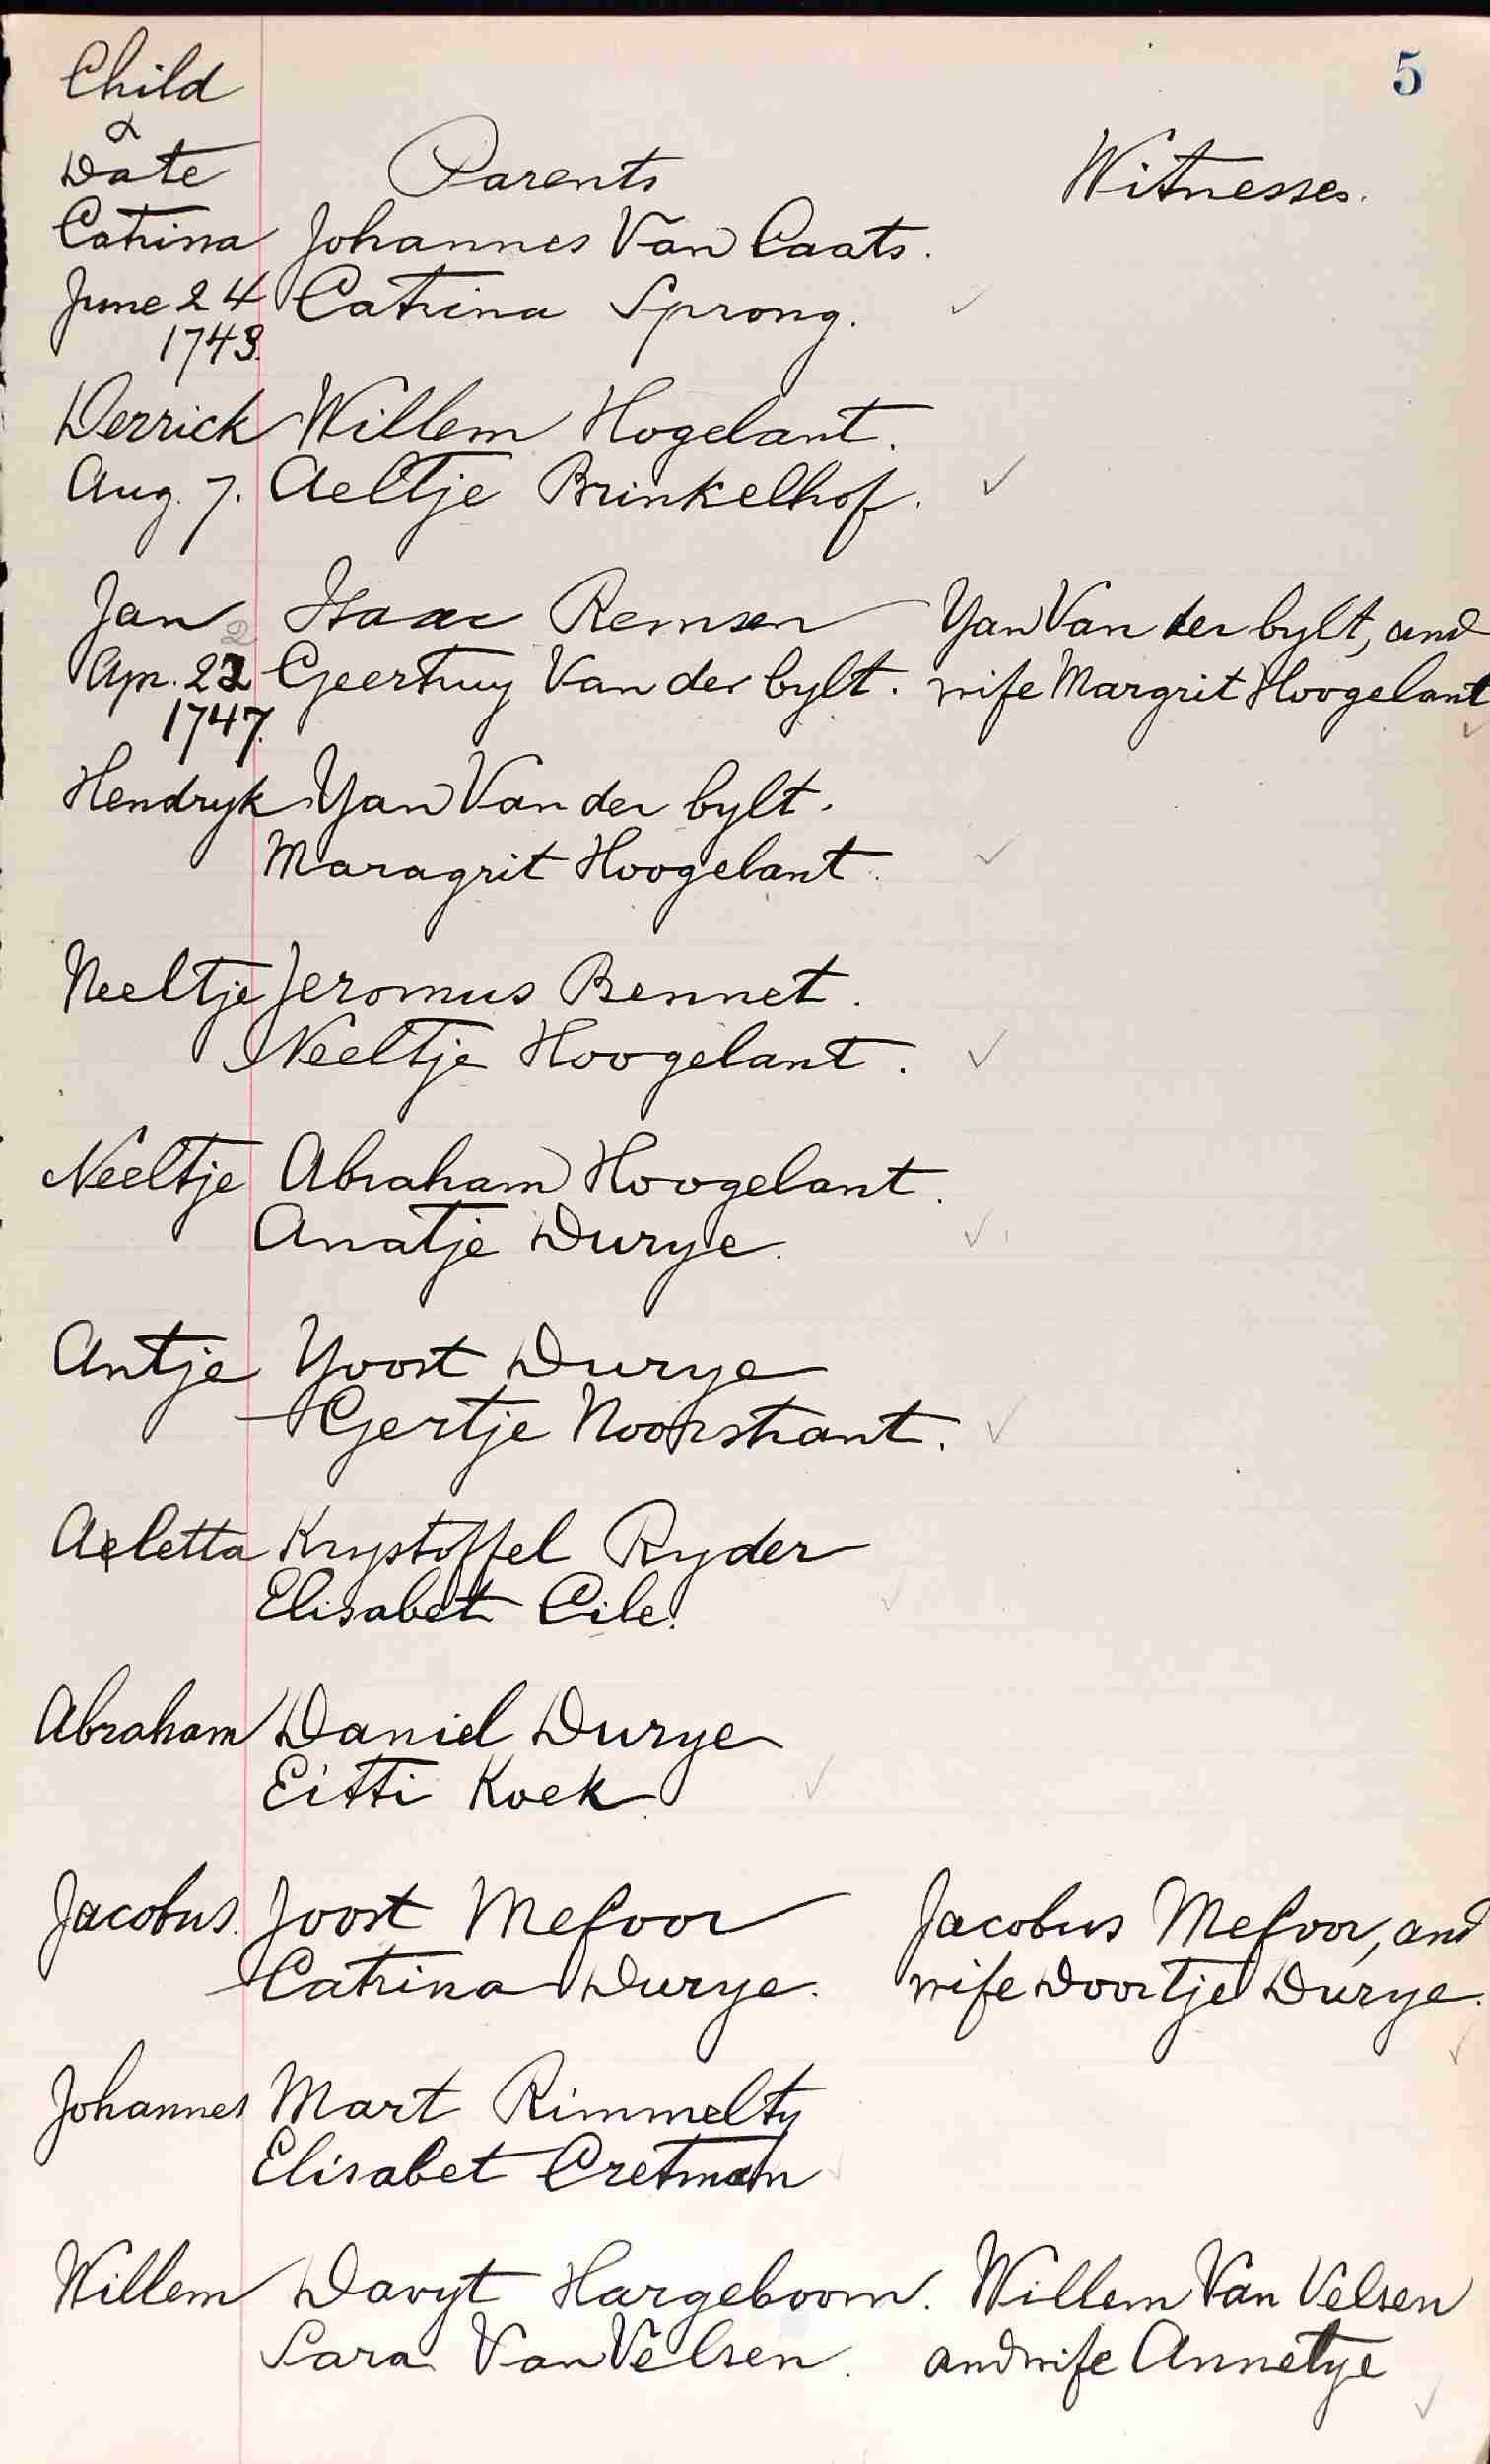 5
Child
&
Date Parents Witnesses.
Catrina Johannes Van Caats.
June 24 Catrina Sprong.
1743.
Derrick Willem Hogelant.
Aug. 7. Aeltje Brinkelhof.
Jan Isaac Remsen Yan Van der bylt, and
Apr. 22 Geertruy Van der bylt. wife Margrit Hoogelant
1747.
Hendryk Yan Van der bylt.
Maragrit Hoogelant.
Neeltje Jeromus Bennet.
Neeltje Hoogelant.
Neeltje Abraham Hoogelant.
Anatje Durye.
Antje Yoost Durye
Gertje Noorstrant.
Aeletta Krystoffel Ryder
Elisabet Cile.
Abraham Daniel Durye
Eitti Koek
Jacobus. Joost Mefoor
Catrina Durye.
Jacobus Mefoor, and
wife Doortje Durye.
Johannes Mart Rimmelty
Elisabet Cretman
Willem Davyt Hargeboom. Willem Van Velsen
Sara Van Velsen. and wife Annetye